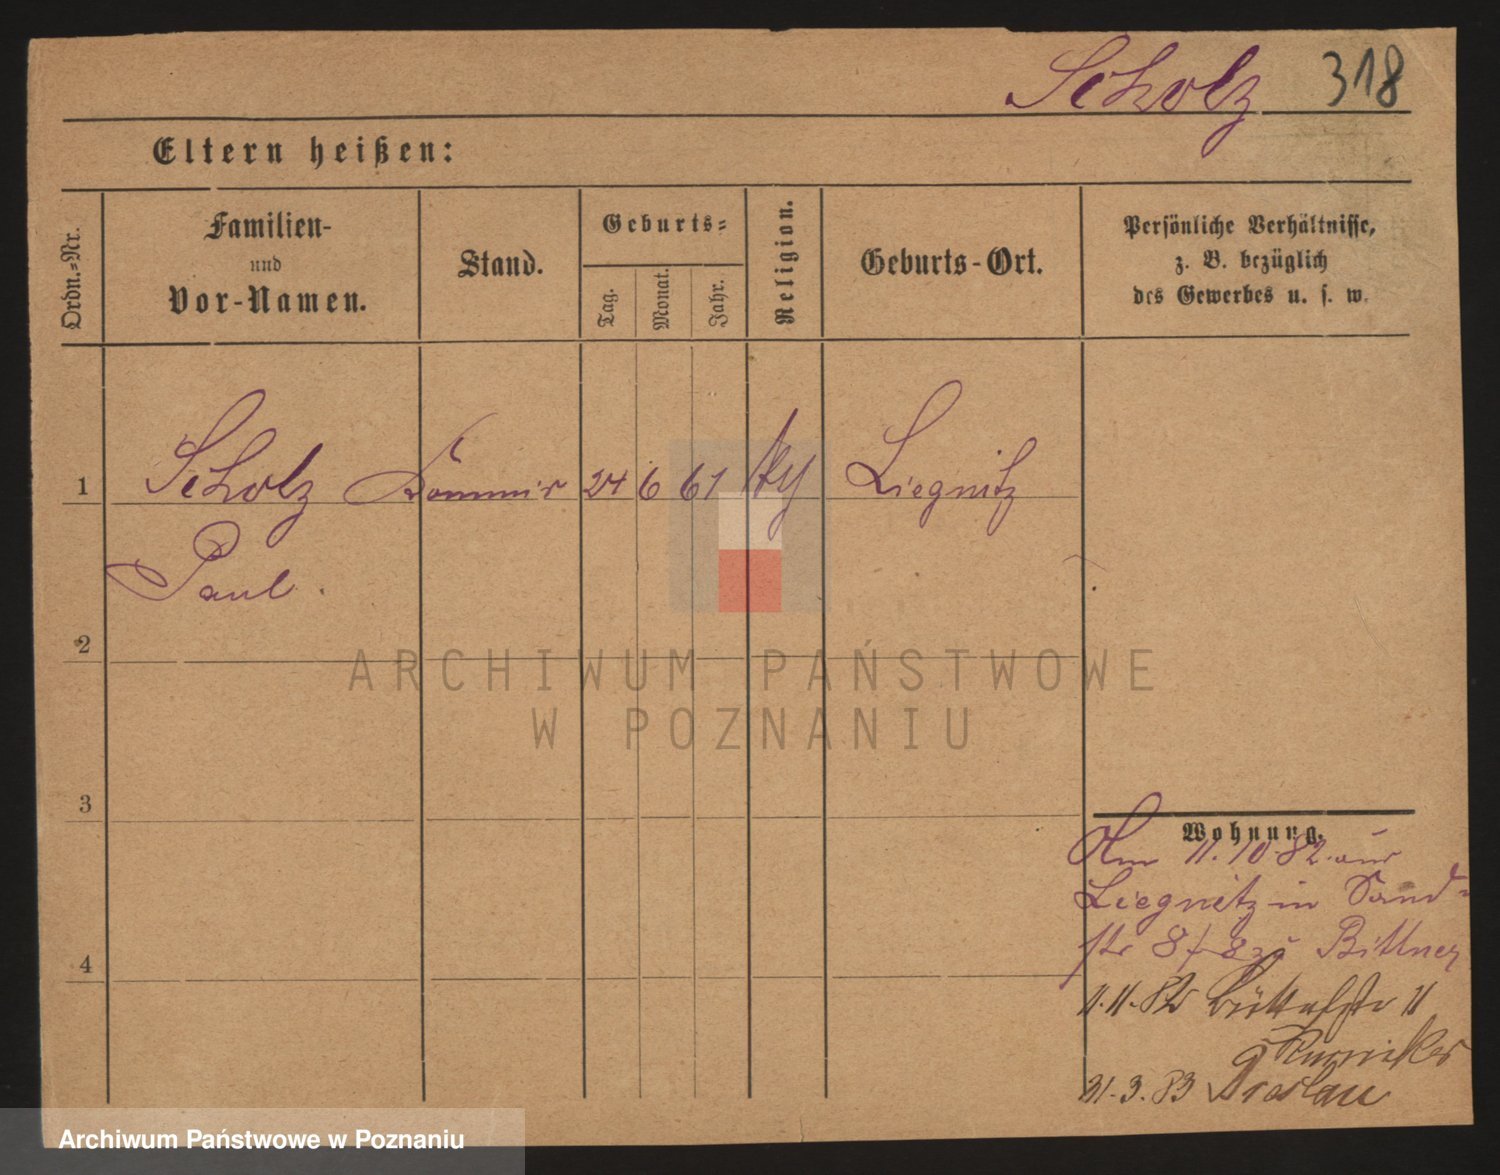 Scholz 318
Eltern heißen:
Ordn.-Nr.
Familien-
und
Vor-Namen.
Stand.
Geburts-
Tag.
Monat.
Jahr.
Religion.
Geburts-Ort.
Persönliche Verhältnisse,
z. B. bezüglich
des Gewerbes u. s. w.
1 Scholz Kommis 24 6 61 Liegnitz
Paul.
2
ARCHIWUM PAŃSTWOWE
W POZNANIU
3
Wohnung.
Am 11.10.82 aus
Liegnitz in Sand-
str 8 Bittner
4
11.11.82 Büttelstr 11
31.3.83 Breslau
Archiwum Państwowe w Poznaniu